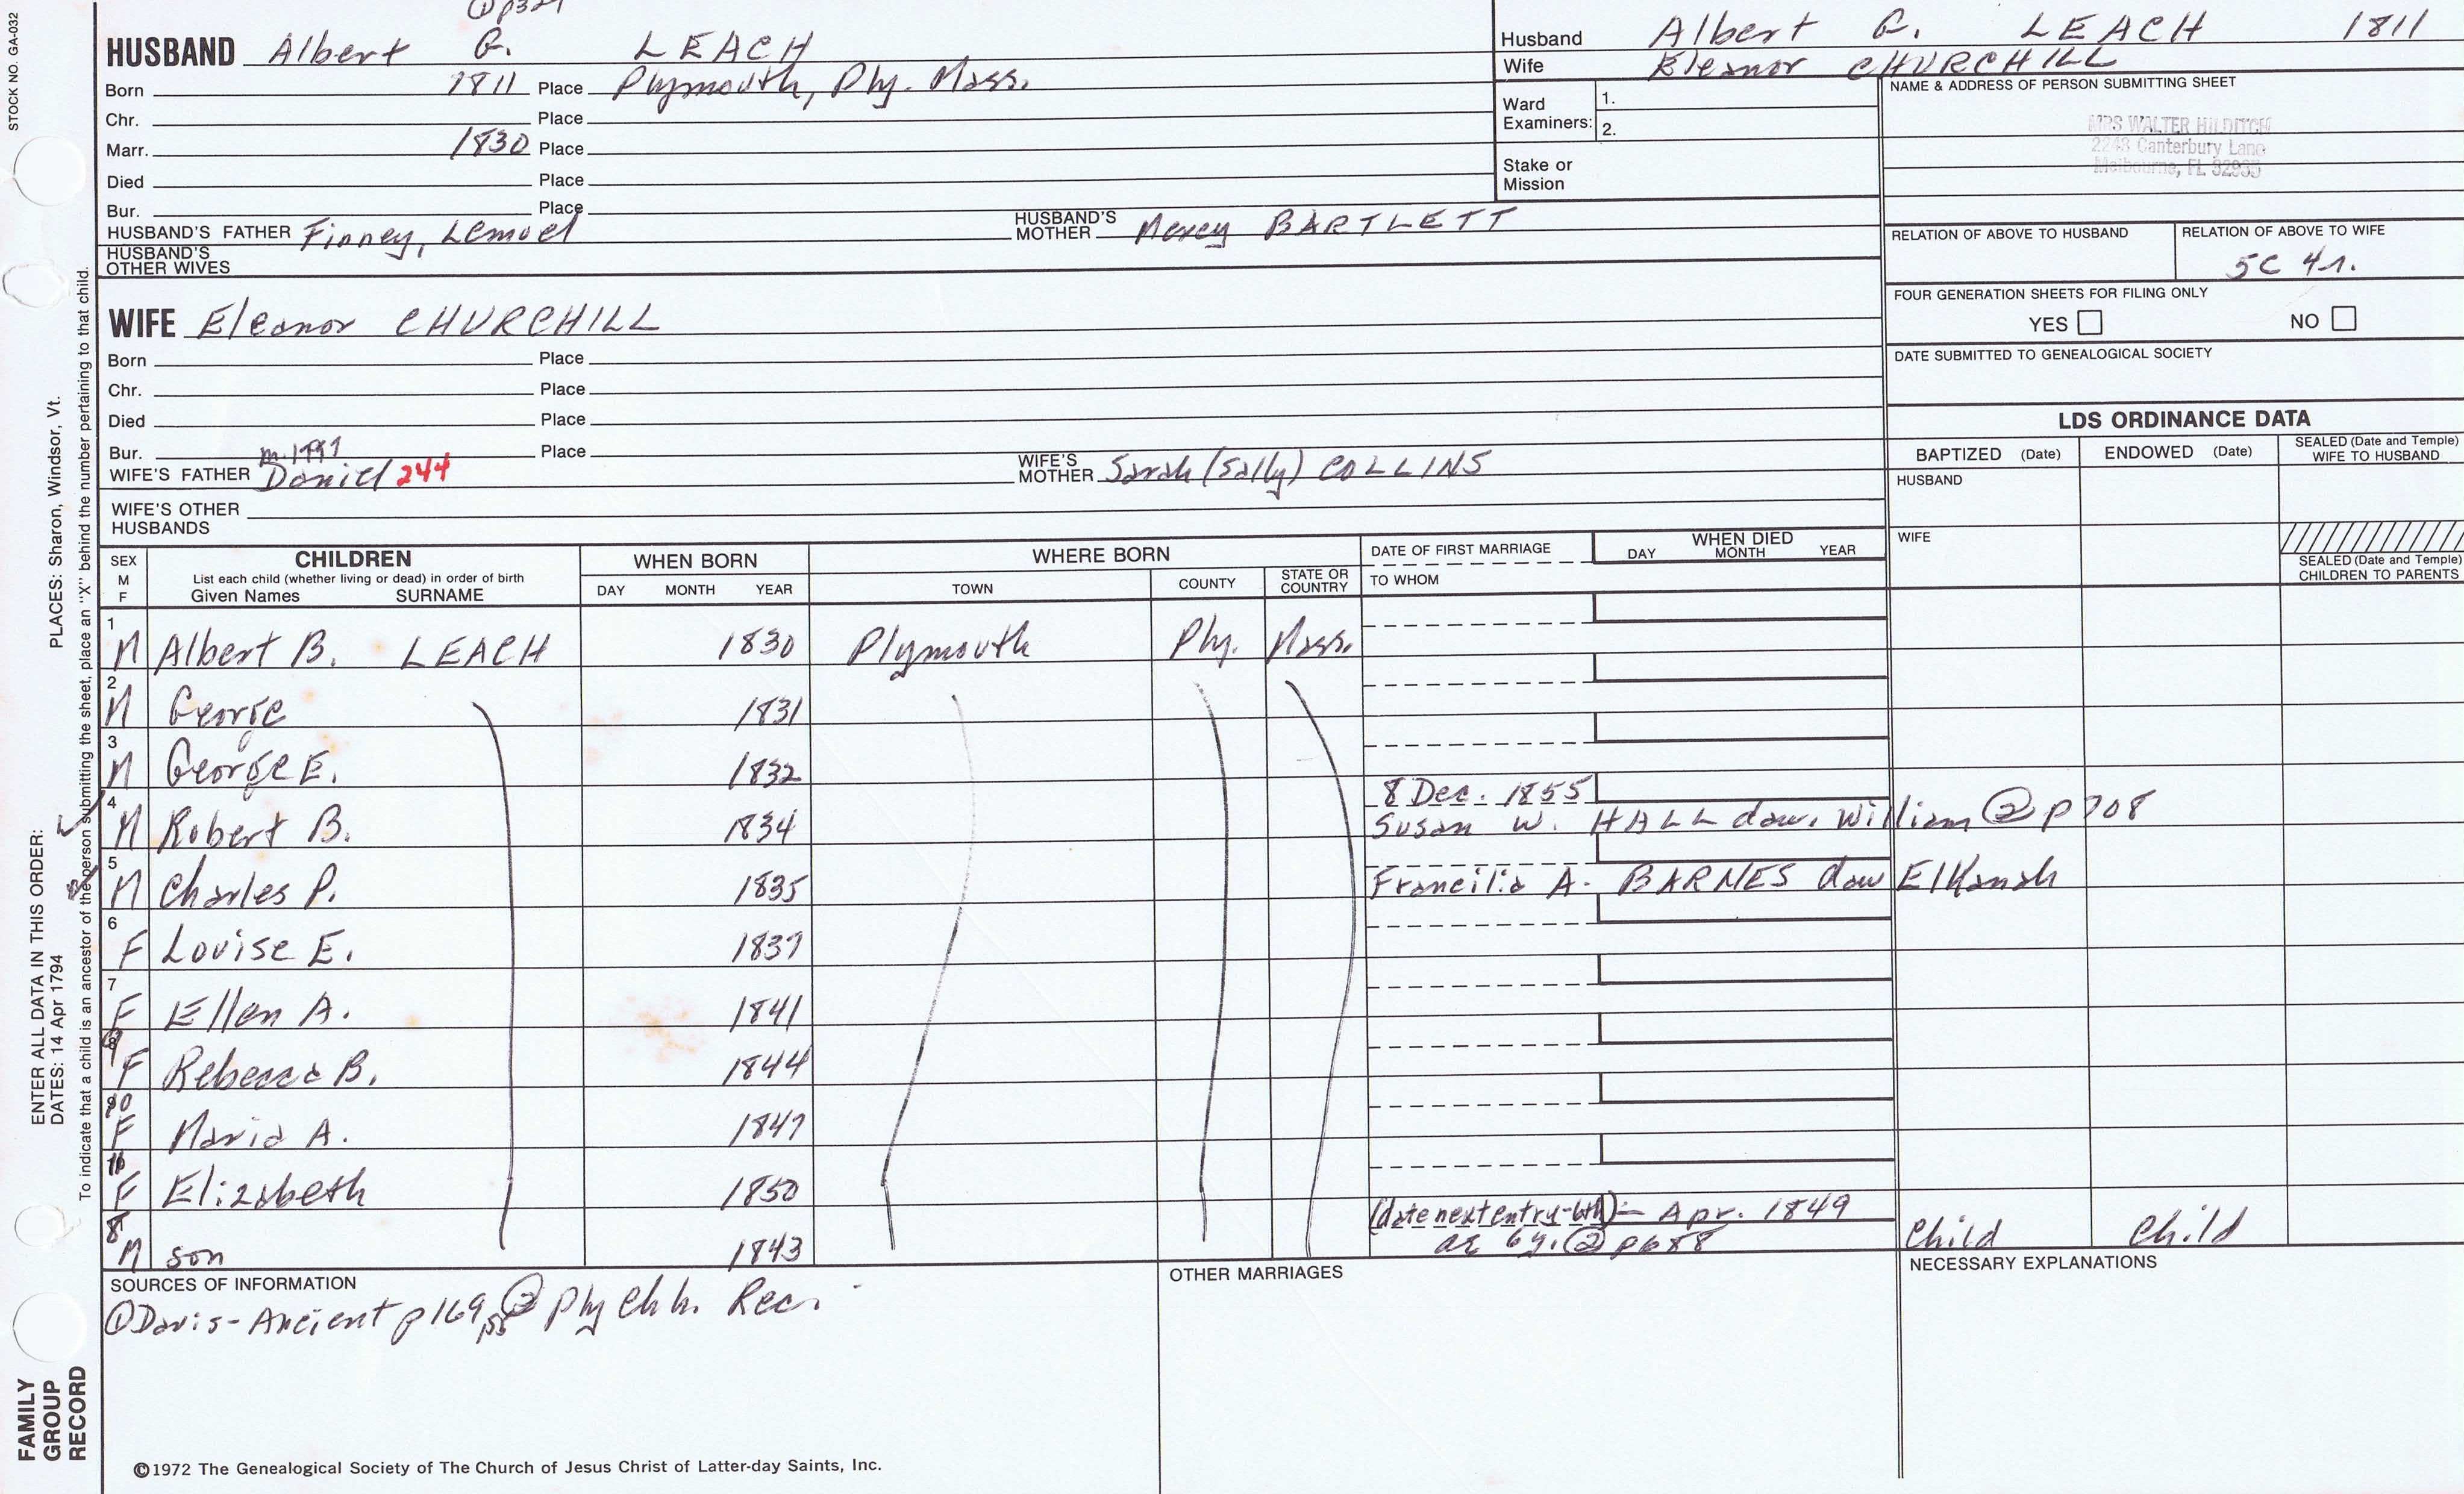 ① p327
HUSBAND Albert G. LEACH
Born 1811 Place Plymouth, Ply. Mass.
Chr. Place
Marr. 1830 Place
Died Place
Bur. Place
HUSBAND'S FATHER Finney, Lemuel HUSBAND'S MOTHER Mercy BARTLETT
HUSBAND'S OTHER WIVES
WIFE Eleanor CHURCHILL
Born Place
Chr. Place
Died Place
Bur. Place
m.1797
WIFE'S FATHER Daniel 244 WIFE'S MOTHER Sarah (Sally) COLLINS
WIFE'S OTHER HUSBANDS
Husband Albert G. LEACH 1811
Wife Eleanor CHURCHILL
Ward Examiners: 1.
2.
Stake or Mission
NAME & ADDRESS OF PERSON SUBMITTING SHEET
MRS WALTER HILDITCH
2248 Canterbury Lane
Melbourne, FL 32935
RELATION OF ABOVE TO HUSBAND RELATION OF ABOVE TO WIFE
5C 4r.
FOUR GENERATION SHEETS FOR FILING ONLY
YES NO
DATE SUBMITTED TO GENEALOGICAL SOCIETY
LDS ORDINANCE DATA
BAPTIZED (Date) ENDOWED (Date) SEALED (Date and Temple) WIFE TO HUSBAND
HUSBAND
WIFE
SEALED (Date and Temple) CHILDREN TO PARENTS
SEX M F CHILDREN WHEN BORN WHERE BORN DATE OF FIRST MARRIAGE WHEN DIED
List each child (whether living or dead) in order of birth
Given Names SURNAME DAY MONTH YEAR TOWN COUNTY STATE OR COUNTRY TO WHOM DAY MONTH YEAR
1 M Albert B. LEACH 1830 Plymouth Ply. Mass.
2 M George 1831
3 M George E. 1832
4 M Robert B. 1834 8 Dec. 1855
Susan W. HALL dau. William @ p708
5 M Charles P. 1835 Francilia A. BARNES dau Elkanah
6 F Louise E. 1837
7 F Ellen A. 1841
9 F Rebecca B. 1844
10 F Maria A. 1847
11 F Elizabeth 1850
8 M son 1843 (date next entry-6th)- Apr. 1849
ae 6y. ② p688 Child Child
SOURCES OF INFORMATION
① Davis-Ancient p169 ② Ply Chh. Rec.
OTHER MARRIAGES
NECESSARY EXPLANATIONS
©1972 The Genealogical Society of The Church of Jesus Christ of Latter-day Saints, Inc.
STOCK NO. GA-032
ENTER ALL DATA IN THIS ORDER:
DATES: 14 Apr 1794 PLACES: Sharon, Windsor, Vt.
To indicate that a child is an ancestor of the person submitting the sheet, place an "X" behind the number pertaining to that child.
FAMILY
GROUP
RECORD